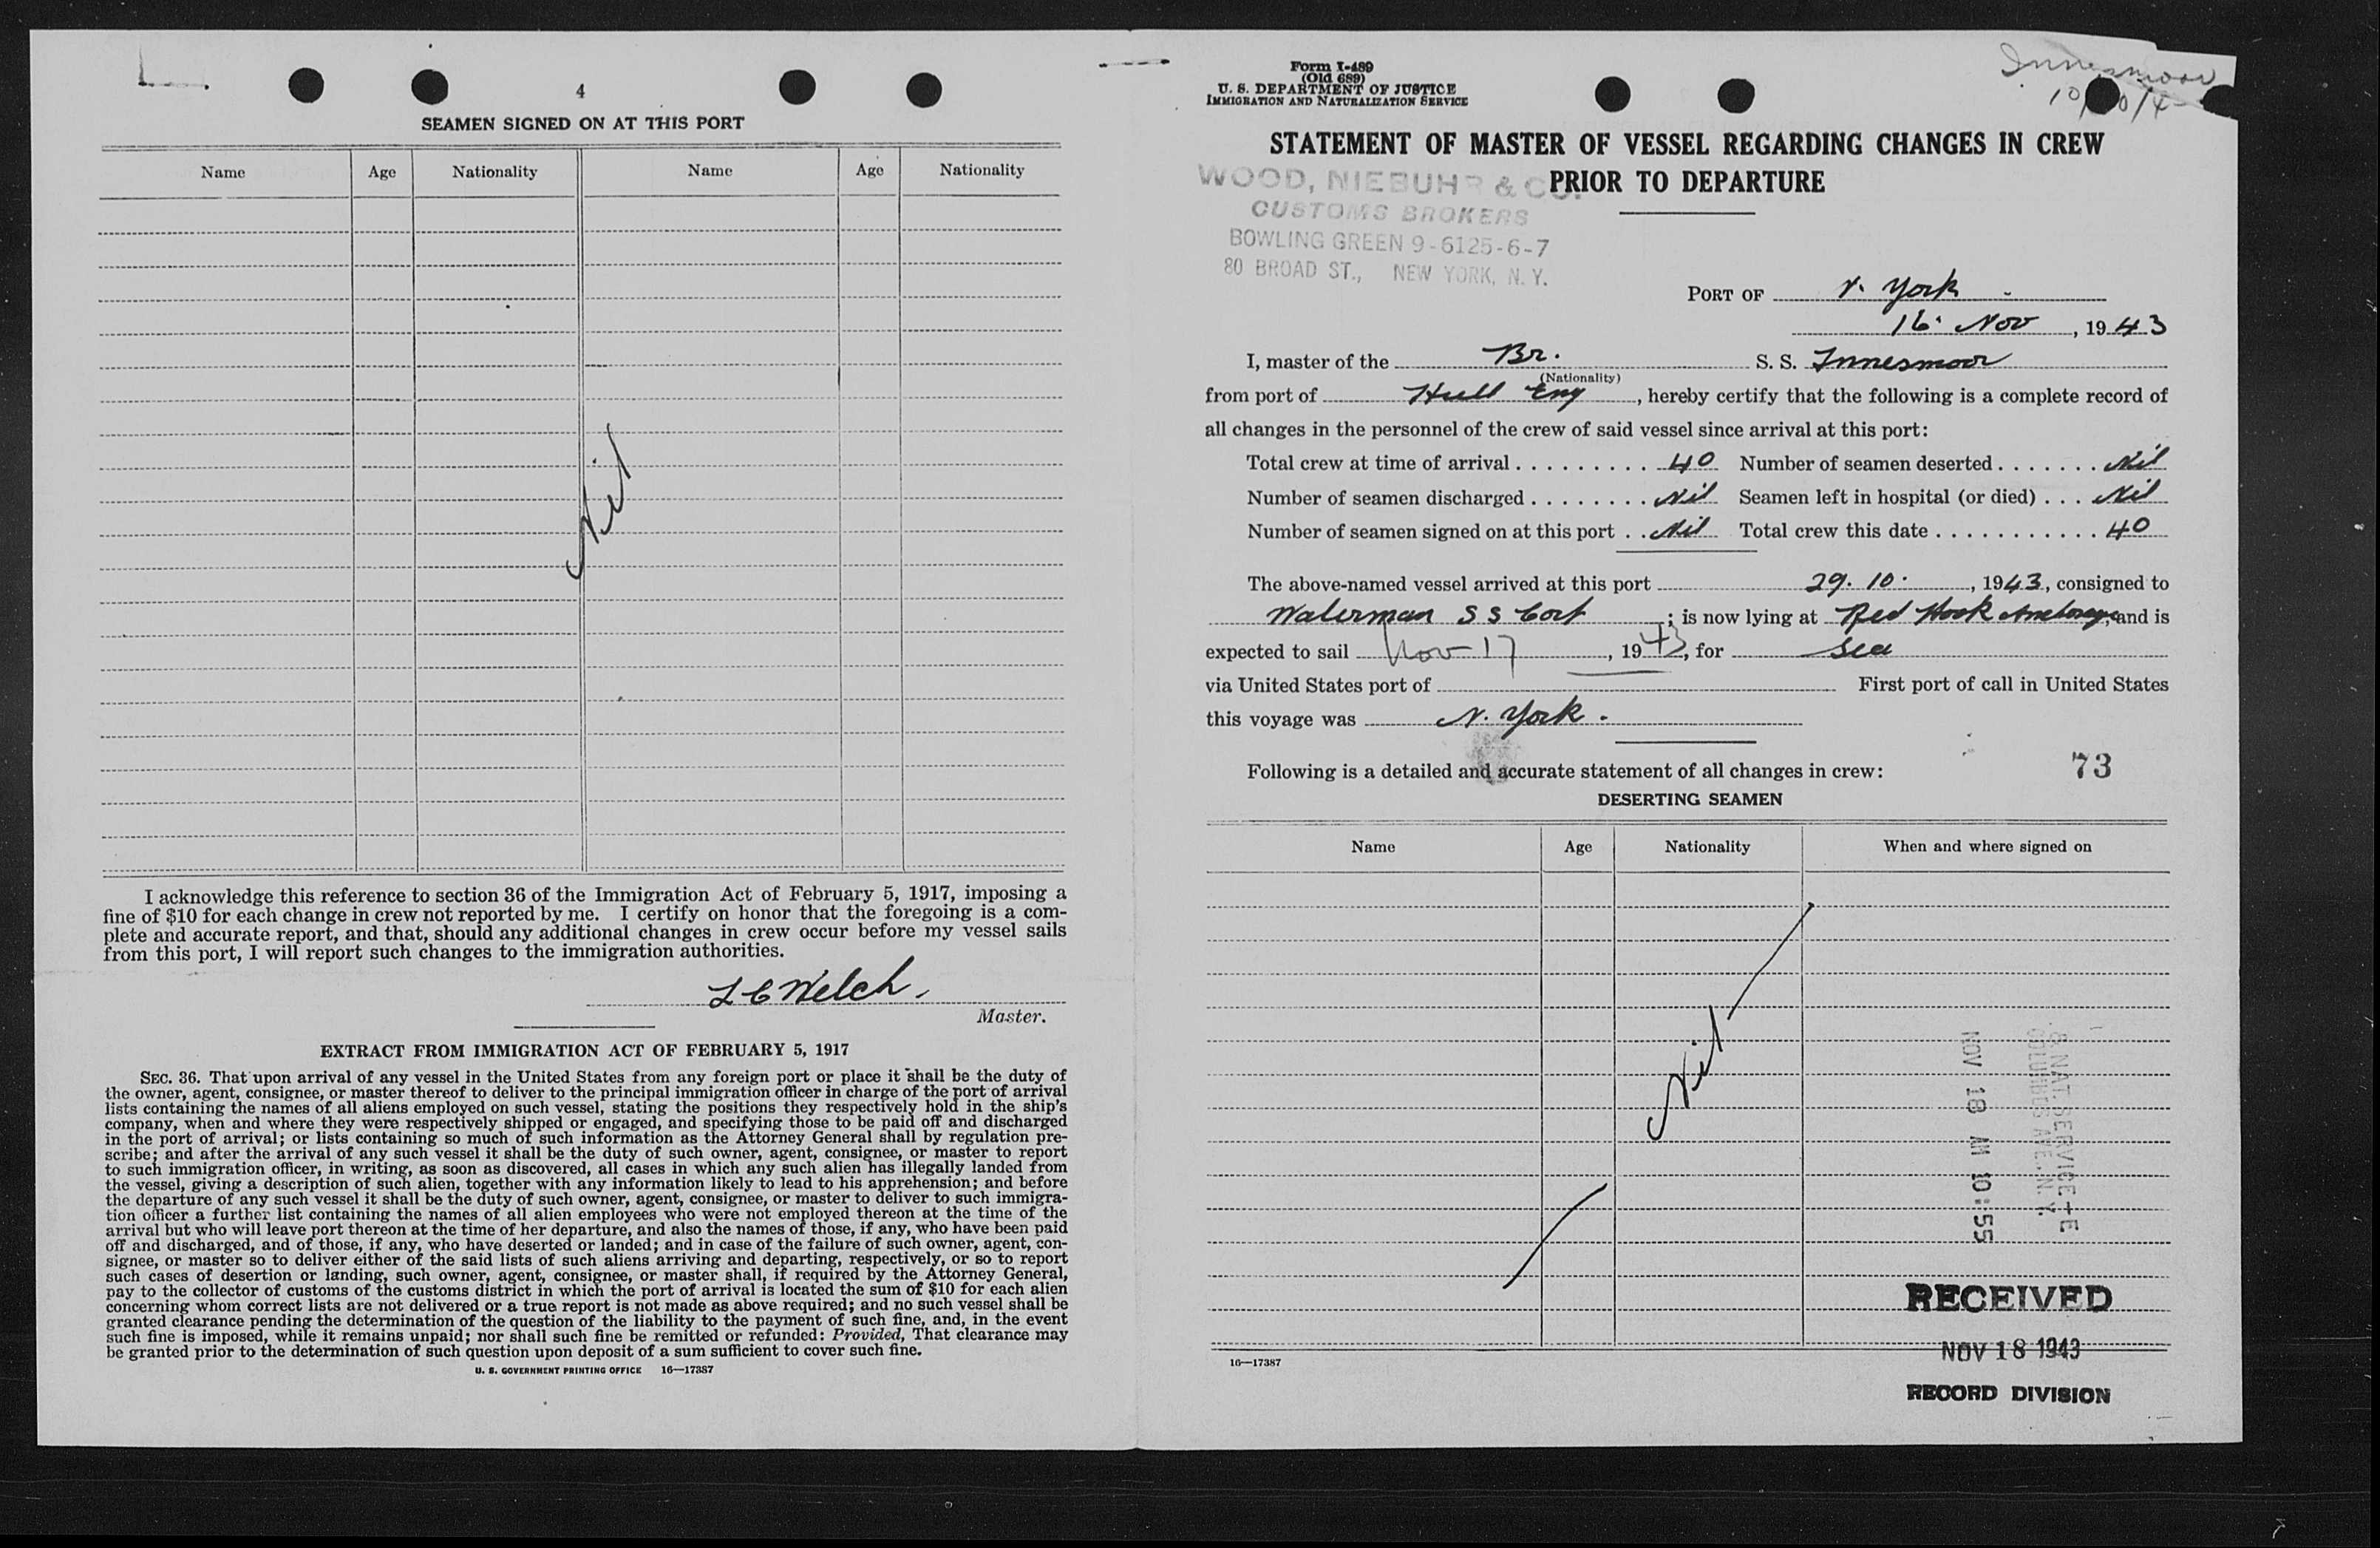 4
SEAMEN SIGNED ON AT THIS PORT
Name Age Nationality Name Age Nationality
Nil
I acknowledge this reference to section 36 of the Immigration Act of February 5, 1917, imposing a
fine of $10 for each change in crew not reported by me. I certify on honor that the foregoing is a com-
plete and accurate report, and that, should any additional changes in crew occur before my vessel sails
from this port, I will report such changes to the immigration authorities.
L C Welch.
Master.
EXTRACT FROM IMMIGRATION ACT OF FEBRUARY 5, 1917
SEC. 36. That upon arrival of any vessel in the United States from any foreign port or place it shall be the duty of
the owner, agent, consignee, or master thereof to deliver to the principal immigration officer in charge of the port of arrival
lists containing the names of all aliens employed on such vessel, stating the positions they respectively hold in the ship's
company, when and where they were respectively shipped or engaged, and specifying those to be paid off and discharged
in the port of arrival; or lists containing so much of such information as the Attorney General shall by regulation pre-
scribe; and after the arrival of any such vessel it shall be the duty of such owner, agent, consignee, or master to report
to such immigration officer, in writing, as soon as discovered, all cases in which any such alien has illegally landed from
the vessel, giving a description of such alien, together with any information likely to lead to his apprehension; and before
the departure of any such vessel it shall be the duty of such owner, agent, consignee, or master to deliver to such immigra-
tion officer a further list containing the names of all alien employees who were not employed thereon at the time of the
arrival but who will leave port thereon at the time of her departure, and also the names of those, if any, who have been paid
off and discharged, and of those, if any, who have deserted or landed; and in case of the failure of such owner, agent, con-
signee, or master so to deliver either of the said lists of such aliens arriving and departing, respectively, or so to report
such cases of desertion or landing, such owner, agent, consignee, or master shall, if required by the Attorney General,
pay to the collector of customs of the customs district in which the port of arrival is located the sum of $10 for each alien
concerning whom correct lists are not delivered or a true report is not made as above required; and no such vessel shall be
granted clearance pending the determination of the question of the liability to the payment of such fine, and, in the event
such fine is imposed, while it remains unpaid; nor shall such fine be remitted or refunded: Provided, That clearance may
be granted prior to the determination of such question upon deposit of a sum sufficient to cover such fine.
U. S. GOVERNMENT PRINTING OFFICE 16—17387
Innesmoor
Form I-489
(Old 689)
U. S. DEPARTMENT OF JUSTICE
IMMIGRATION AND NATURALIZATION SERVICE
STATEMENT OF MASTER OF VESSEL REGARDING CHANGES IN CREW
PRIOR TO DEPARTURE
WOOD, NIEBUHR & CO.
CUSTOMS BROKERS
BOWLING GREEN 9-6125-6-7
80 BROAD ST., NEW YORK, N. Y.
PORT OF N. York
16. Nov, 1943
I, master of the Br. S. S. Innesmoor
(Nationality)
from port of Hull Eng, hereby certify that the following is a complete record of
all changes in the personnel of the crew of said vessel since arrival at this port:
Total crew at time of arrival . . . . . . . . . . 40 Number of seamen deserted . . . . . . . Nil
Number of seamen discharged . . . . . . . . Nil Seamen left in hospital (or died) . . . Nil
Number of seamen signed on at this port . . Nil Total crew this date . . . . . . . . . . . . 40
The above-named vessel arrived at this port 29. 10., 1943, consigned to
Waterman S S Corp; is now lying at Red Hook Anchorage, and is
expected to sail Nov 17, 1943, for Sea
via United States port of First port of call in United States
this voyage was N. York.
Following is a detailed and accurate statement of all changes in crew: 73
DESERTING SEAMEN
Name Age Nationality When and where signed on
Nil
NAT. SERVICE
COLUMBUS AVE. N. Y.
NOV 18 AM 10:55
RECEIVED
NOV 18 1943
RECORD DIVISION
16—17387